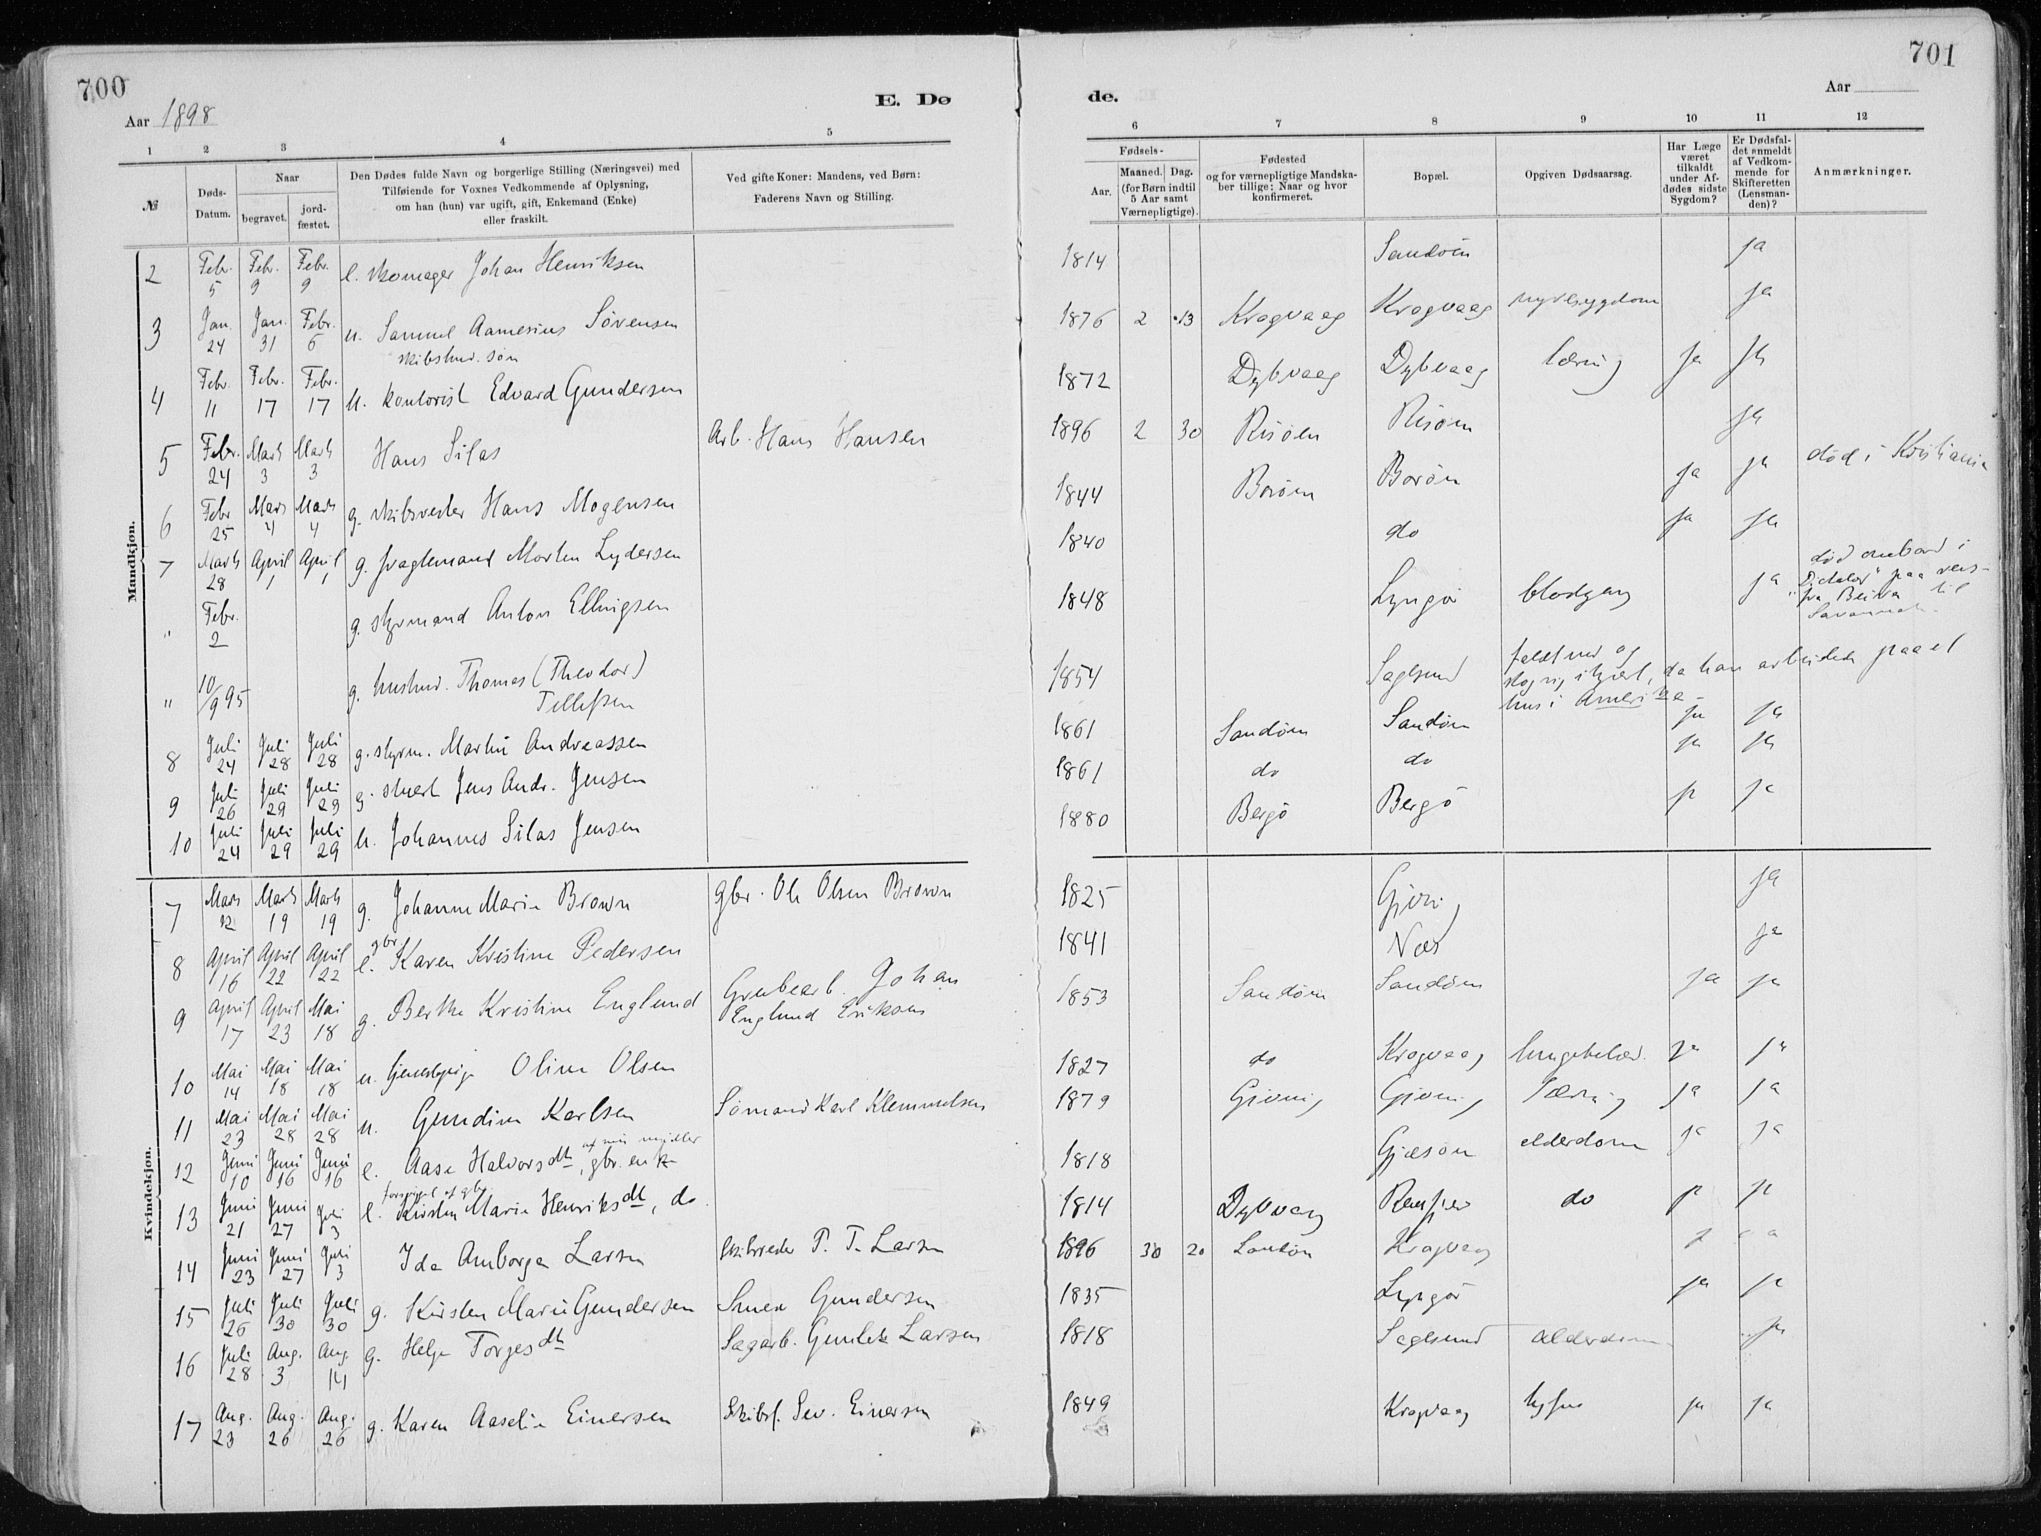 700
701
Aar 1898
E. Dø
de.
Aar
1 2 3 4 5
6 7 8 9 10 11 12
№
Døds-Datum.
Naar
begravet.
jord-fæstet.
Den Dødes fulde Navn og borgerlige Stilling (Næringsvei) med
Tilføiende for Voxnes Vedkommende af Oplysning,
om han (hun) var ugift, gift, Enkemand (Enke)
eller fraskilt.
Ved gifte Koner: Mandens, ved Børn:
Faderens Navn og Stilling.
Fødsels-
Aar.
Maaned. Dag.
(for Børn indtil
5 Aar samt
Værnepligtige).
Fødested
og for værnepligtige Mandska-
ber tillige: Naar og hvor
konfirmeret.
Bopæl.
Opgiven Dødsaarsag.
Har Læge
været
tilkaldt
under Af-
dødes sidste
Sygdom?
Er Dødsfal-
det anmeldt
af Vedkom-
mende for
Skifteretten
(Lensman-
den)?
Anmærkninger.
Mandkjøn.
2 Febr. 5 Febr. 9 Febr. 9 e. skomager Johan Henriksen 1814 Sandöen ja
3 Jan. 24 Jan. 31 Febr. 6 u. Samuel Aamesius Sörensen 1876 2 13 Kragvaag Kragvaag nyresygdom ja
skibstmd. søn
4 Febr. 11 Febr. 17 Febr. 17 u. kontorist Edvard Gundersen 1872 Dybvaag Dybvaag tæring ja ja
5 Febr. 24 Marts 3 Marts 3 Hans Silas Arb. Hans Hansen 1896 2 30 Risöen Risöen ja
6 Febr 25 Marts 4 Marts 4 g. skibsreder Hans Mogensen 1844 Boröen Boröen ja ja död i Kristiania
7 Marts 28 April 1 April 1 g. fragtemand Morten Lydersen 1840 do ja ja
" Febr. 2 g. styrmand Anton Ellingsen 1848 Lyngör blodgang ja död ombord i
"Dictator" paa reis-
fra Beira til
Savannah.
" 10/9 95 g. husmd. Thomas (Theodor)
Tellefsen 1854 Saglsund faldt ned og
slog sig ihjel, da han arbeidede paa et
hus i Amerika.
8 Juli 24 Juli 28 Juli 28 g. styrm. Martin Andreassen 1861 Sandöen Sandöen ja ja
9 Juli 26 Juli 29 Juli 29 g. stuert Jens Andr. Jensen 1861 do do ja ja
10 Juli 24 Juli 29 Juli 29 u. Johannes Silas Jensen 1880 Bergö Bergö ja ja
Kvindekjøn.
7 Marts 12 Marts 19 Marts 19 g. Johanne Marie Brown gbr. Ole Olsen Brown 1825 Gjeving ja
8 April 16 April 22 April 22 e. gbr Karen Kristine Pedersen 1841 Næs ja
9 April 17 April 23 Mai 18 g. Berthe Kristine Englund Grubearb. Johan
Englund Eriksen 1853 Sandöen Sandöen ja ja
10 Mai 14 Mai 18 Mai 18 u. tjenestepige Oline Olsen 1827 do Kragvaag lungebetæn. ja ja
11 Mai 23 Mai 28 Mai 28 u. Gundine Karlsen Sömand Karl Klemmetsen 1879 Gjeving Gjeving Tæring ja ja
12 Juni 10 Juni 16 Juni 16 e. Aase Halvorsdtr, gbr. enk- 1818 Gjæsöen alderdom ja ja
13 Juni 21 Juni 27 Juli 3 e. Kirsten Marie Henriksdtr, do 1814 Dybvaag do ja ja
14 Juni 23 Juni 27 Juli 3 Ida Amborga Larsen Skibsreder P. T. Larsen 1896 30 20 Kragvaag
15 Juli 26 Juli 30 Juli 30 g. Kirsten Marie Gundersen Gundersen 1835 Lyngör ja ja
16 Juli 28 Aug. 3 Aug. 14 g. Helje Torgesdtr Sagarb. Larsen 1818 Saglsund alderdom ja
17 Aug. 23 Aug. 26 Aug. 26 g. Karen Aaselie Einersen Skibsf. Sev. Einersen 1849 Kragvaag tyfus ja ja